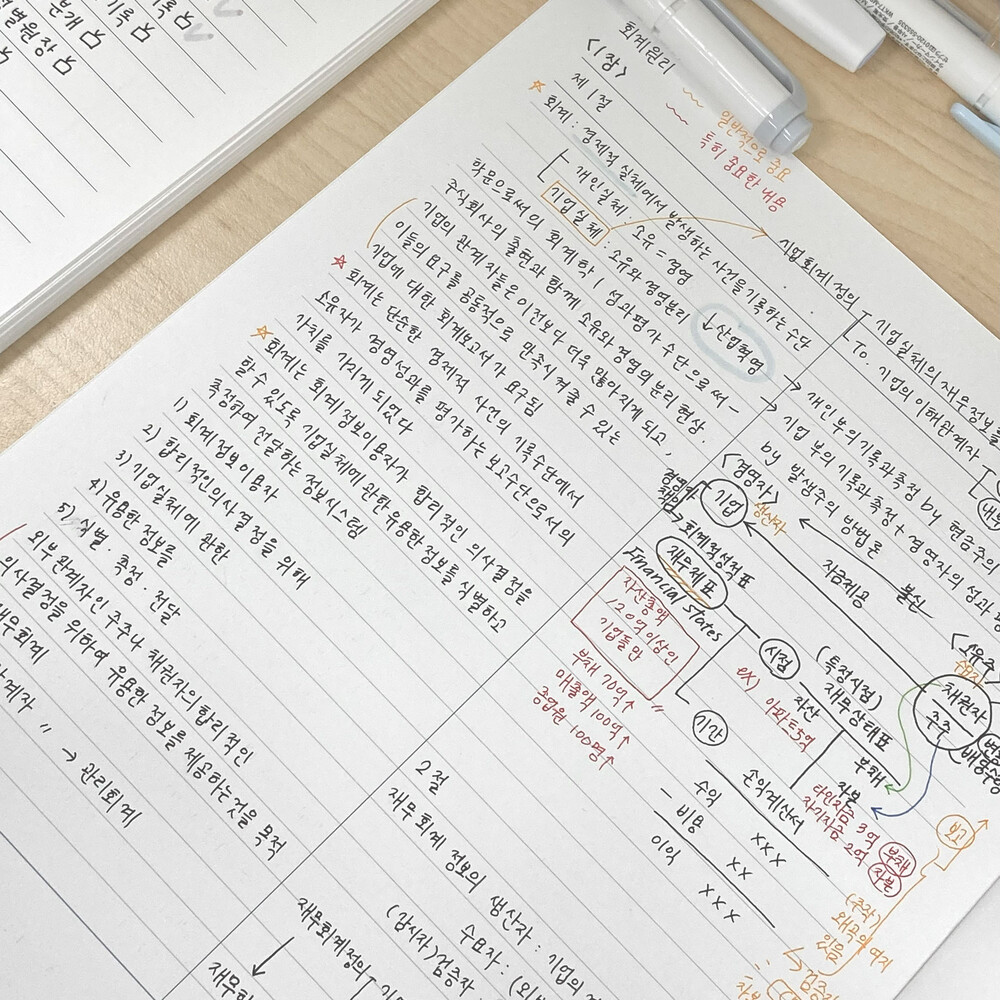 분개 요
기록 요
회계원리
〈1장〉
제1절
~ 일반적으로 중요
~ 특히 중요한 내용
☆ 회계 : 경제적 실체에서 발생하는 사건을 기록하는 수단
개인실체 : 소유 = 경영
기업실체 : 소유와 경영분리
↓산업혁명
학문으로써의 회계학 / 성과평가 수단으로써 -
주식회사의 출현과 함께 소유와 경영의 분리 현상.
기업의 관계자들은 이전보다 더욱 많아지게 되고,
이들의 요구를 공통적으로 만족시켜줄 수 있는
기업에 대한 회계보고서가 요구됨
☆ 회계는 단순한 경제적 사건의 기록수단에서
소유자가 경영성과를 평가하는 보고수단으로서의
가치를 가지게 되었다
☆ 회계는 회계정보이용자가 합리적인 의사결정을
할 수 있도록 기업실체에 관한 유용한 정보를 식별하고
측정하여 전달하는 정보시스템
1) 회계정보이용자
2) 합리적인의사결정을 위해
3) 기업실체에 관한
4) 유용한 정보를
5) 식별 · 측정 · 전달
외부관계자인 주주나 채권자의 합리적인
의사결정을 위하여 유용한 정보를 제공하는것을 목적
재무회계
〃 → 관리회계
기업회계 정의
기업실체의 재무정보를
To. 기업의 이해관계자
→ 개인부의 기록과측정 by 현금주의
→ 기업 부의 기록과 측정 + 경영자의 성과
by 발생주의 방법론
〈경영자〉
기업
생산자
자금제공
불신
채권자
주주
→회계적성적표
재무제표
Financial states
자산총액
120억이상인
기업들만
부채 70억↑
매출액 100억↑
종업원 100명↑
시점
(특정시점)
재무상태표
ex) 아파트5억
자산
부채
자본
타인자금 3억 부채
자기자금 2억 자본
기간
손익계산서
수익 xxx
- 비용 xx
이익 xxx
보고
(조작)
왜곡의 여지
있음
2절
재무회계 정보의 생산자 : 기업의
수요자 : (외
(감시자)검증자
재무회계정의